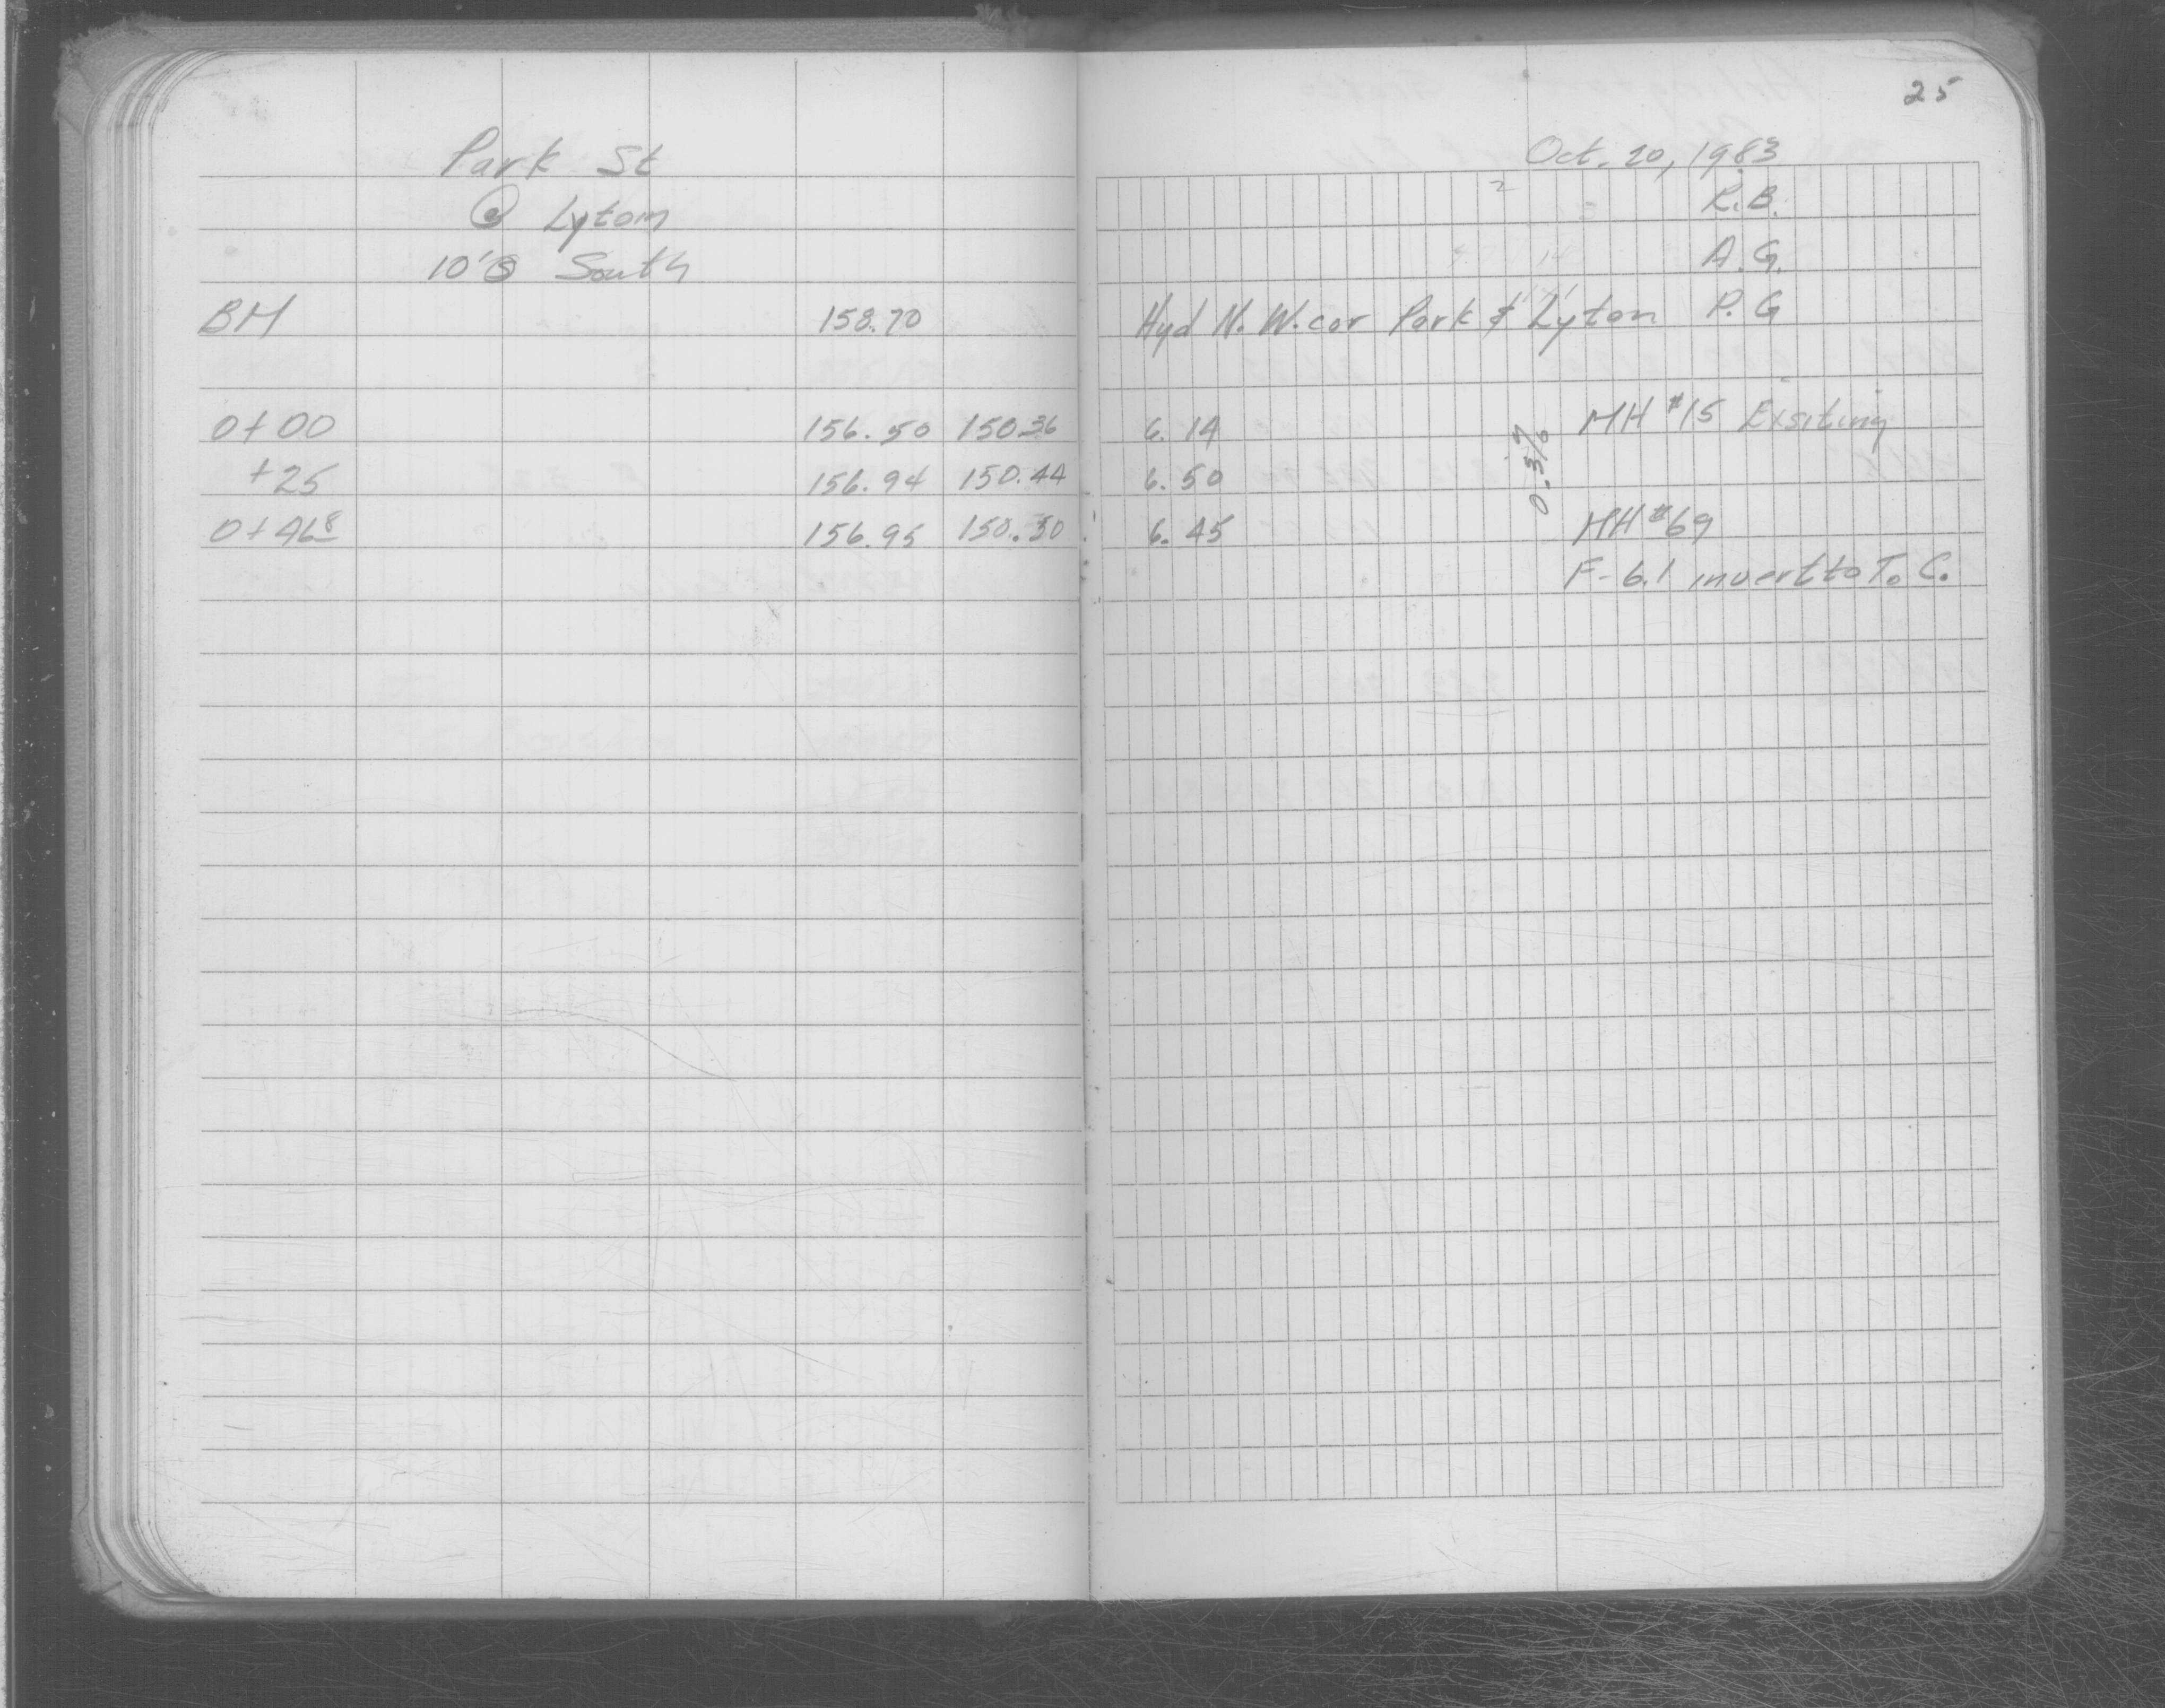 25
Park St
@ Lyton
10' @ South
Oct. 20, 1983
R.B.
A.G.
BM 158.70 Hyd N.W. cor Park & Lyton P.G
0+00 156.50 150.36 6.14 MH #15 Exsiting
+25 156.94 150.44 6.50
0.3%
0+46⁸ 156.95 150.50 6.45 MH #69
F-6.1 invert to T.C.